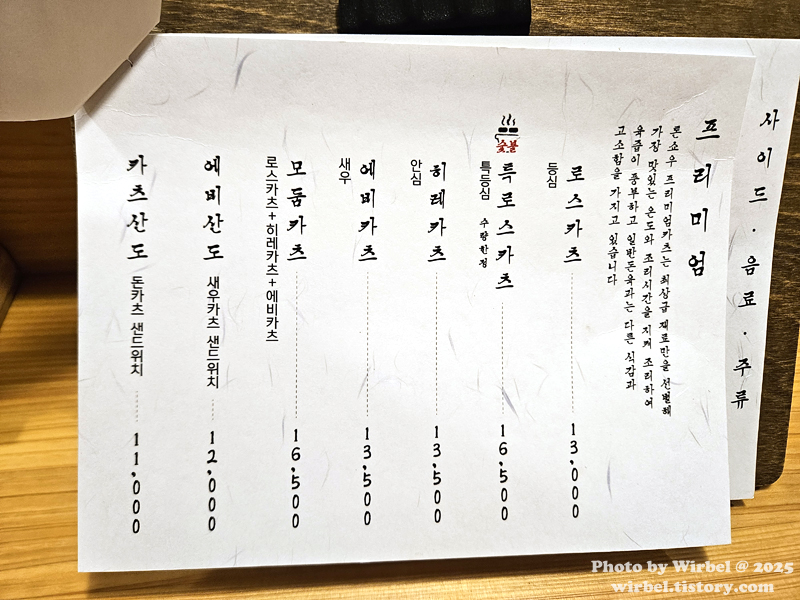 사이드 · 음료 · 주류
프리미엄
톤쇼우 프리미엄카츠는 최상급 재료만을 선별해
가장 맛있는 온도와 조리시간을 지켜 조리하여
육즙이 풍부하고 일반돈육과는 다른 식감과
고소함을 가지고 있습니다
로스카츠 13,000
등심
숯불
특로스카츠 16,500
특등심 수량한정
히레카츠 13,500
안심
에비카츠 13,500
새우
모둠카츠 16,500
로스카츠+히레카츠+에비카츠
에비산도 새우카츠 샌드위치 12,000
카츠산도 돈카츠 샌드위치 11,000
Photo by Wirbel @ 2025
wirbel.tistory.com